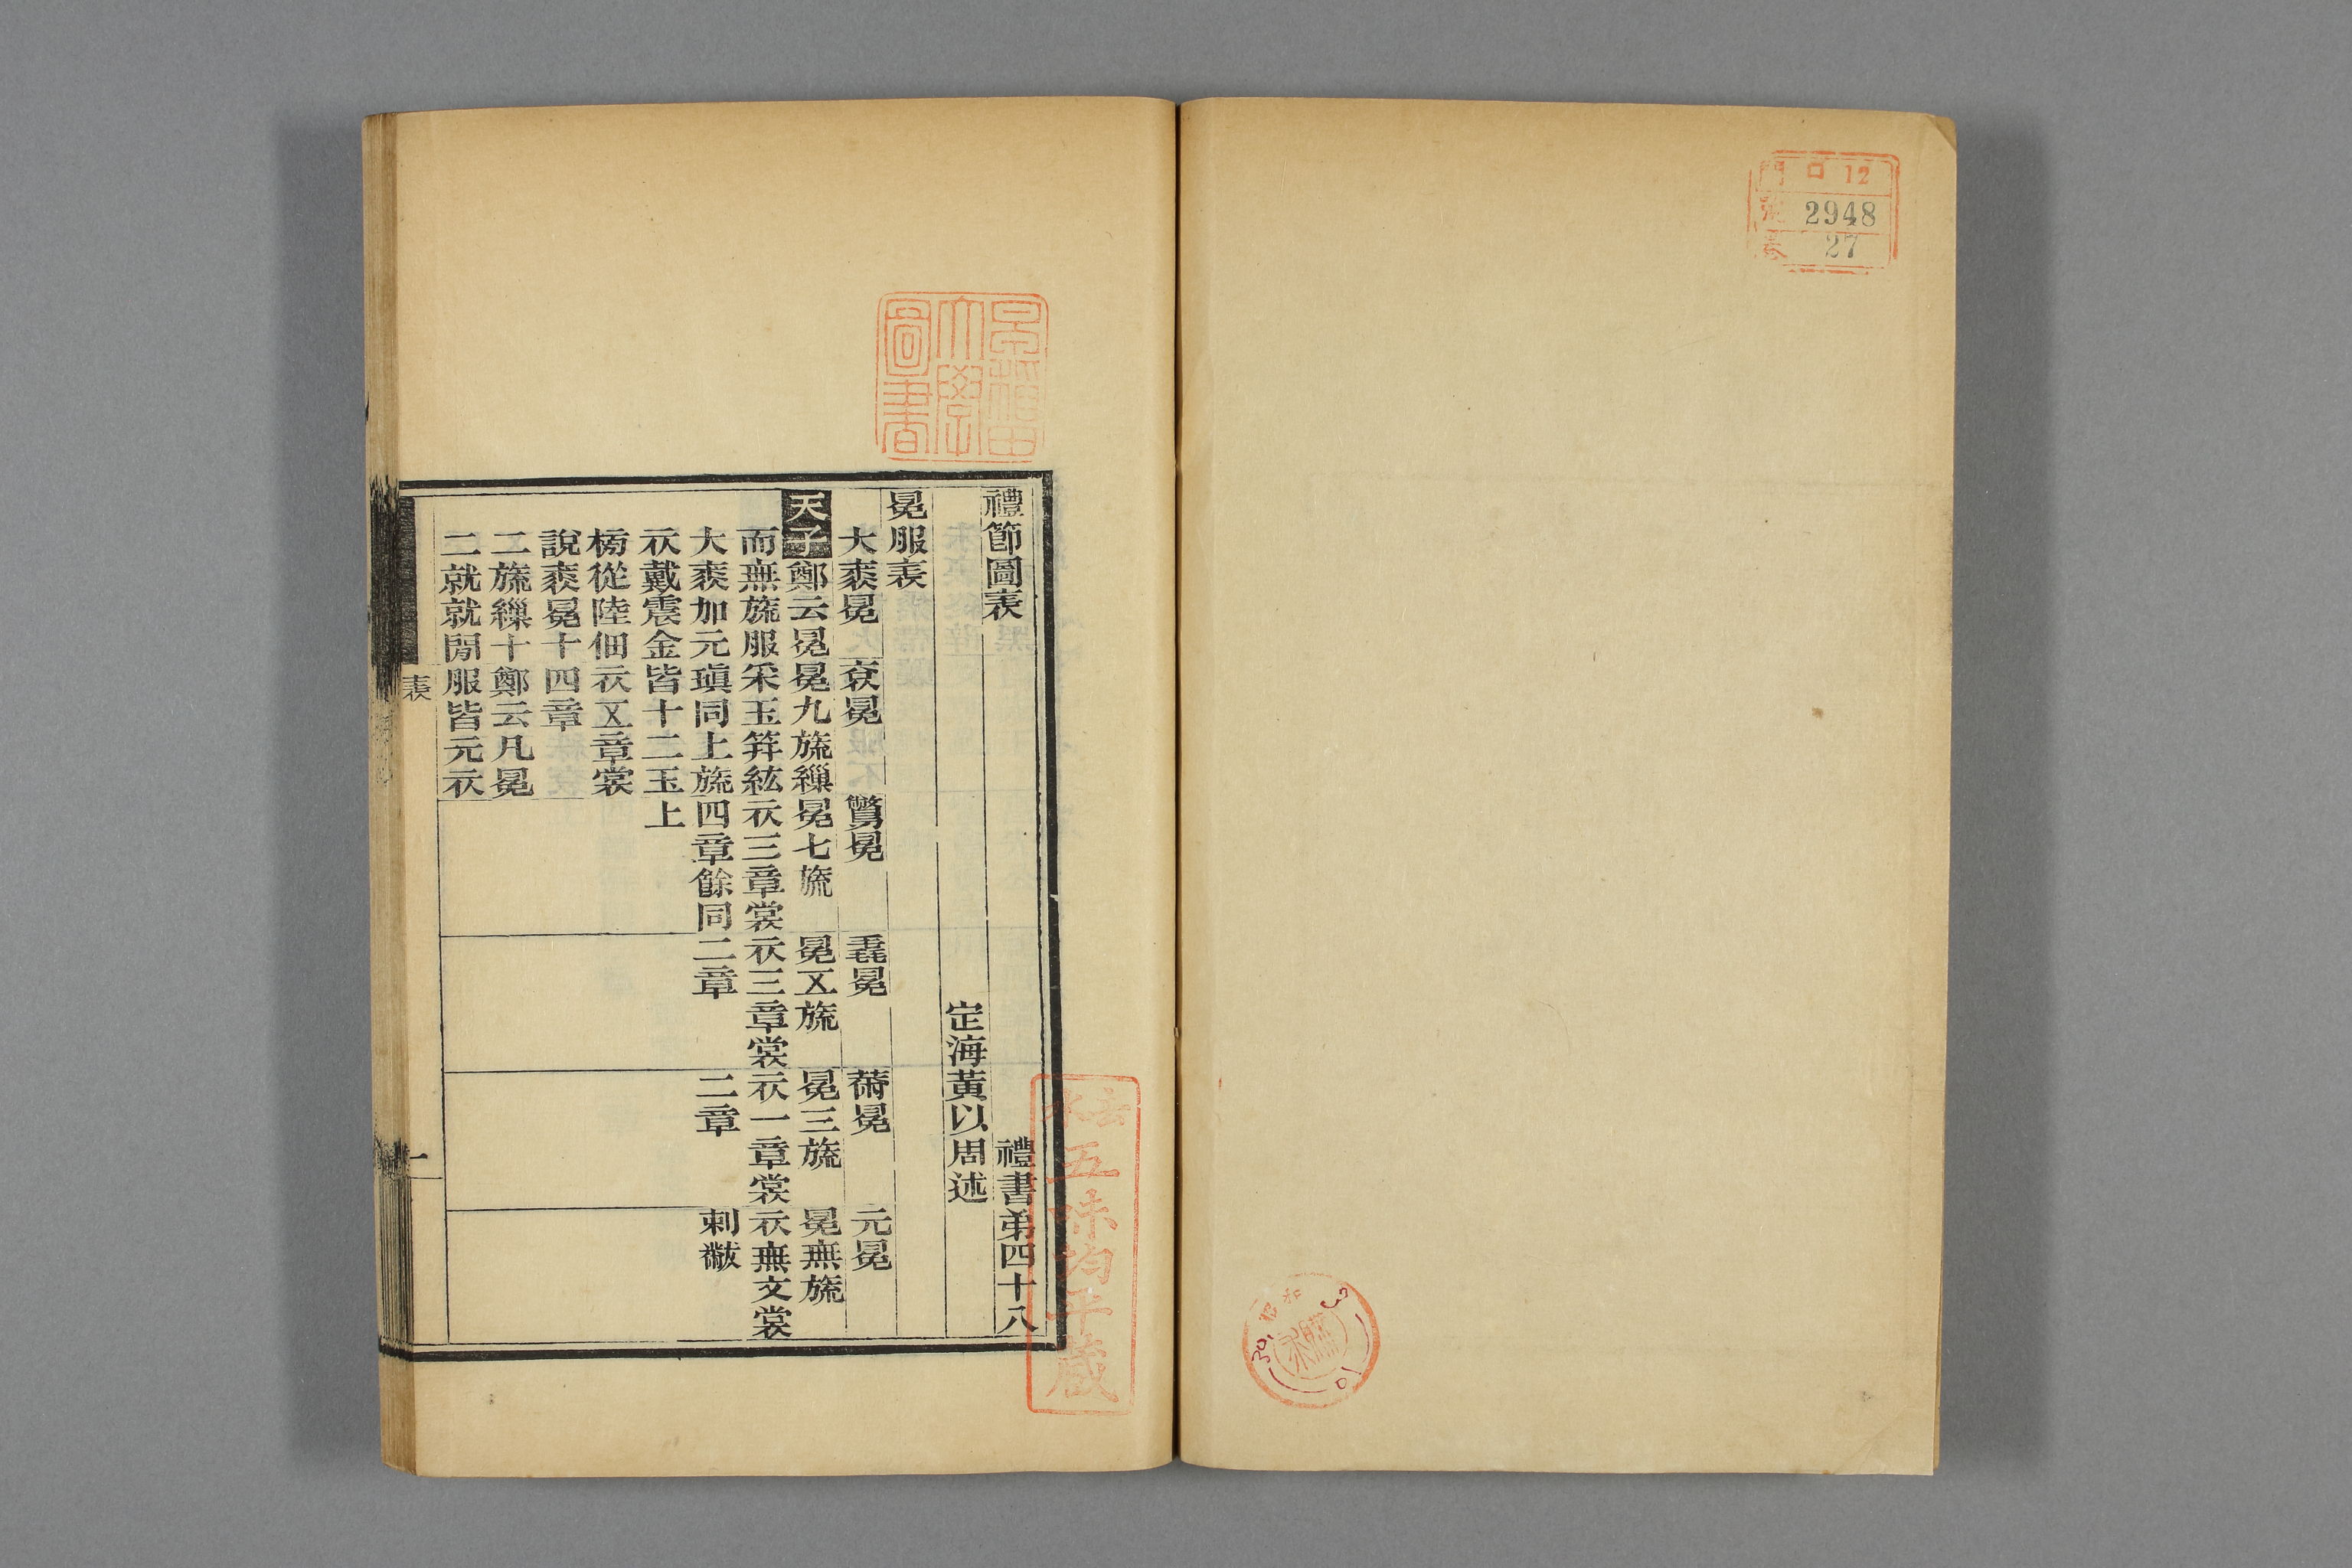 門 ロ 12
號 2948
卷 27
早稲田大學圖書
禮節圖表 禮書弟四十八
定海黃以周述
冕服表
大裘冕 衮冕 鷩冕 毳冕 黹冕 元冕
天子 鄭云冕 冕九旒繅 冕七旒 冕五旒 冕三旒 冕無旒
而無旒服 采玉筓紘 衣三章裳 衣三章裳 衣一章裳 衣無文裳
大裘加元 瑱同上旒 四章餘同 二章 二章 刺黻
衣戴震金 皆十二玉 上
榜從陸佃 衣五章裳
說裘冕十 四章
二旒繅十 鄭云凡冕
二就就閒 服皆元衣
表
一
五味均平蔵